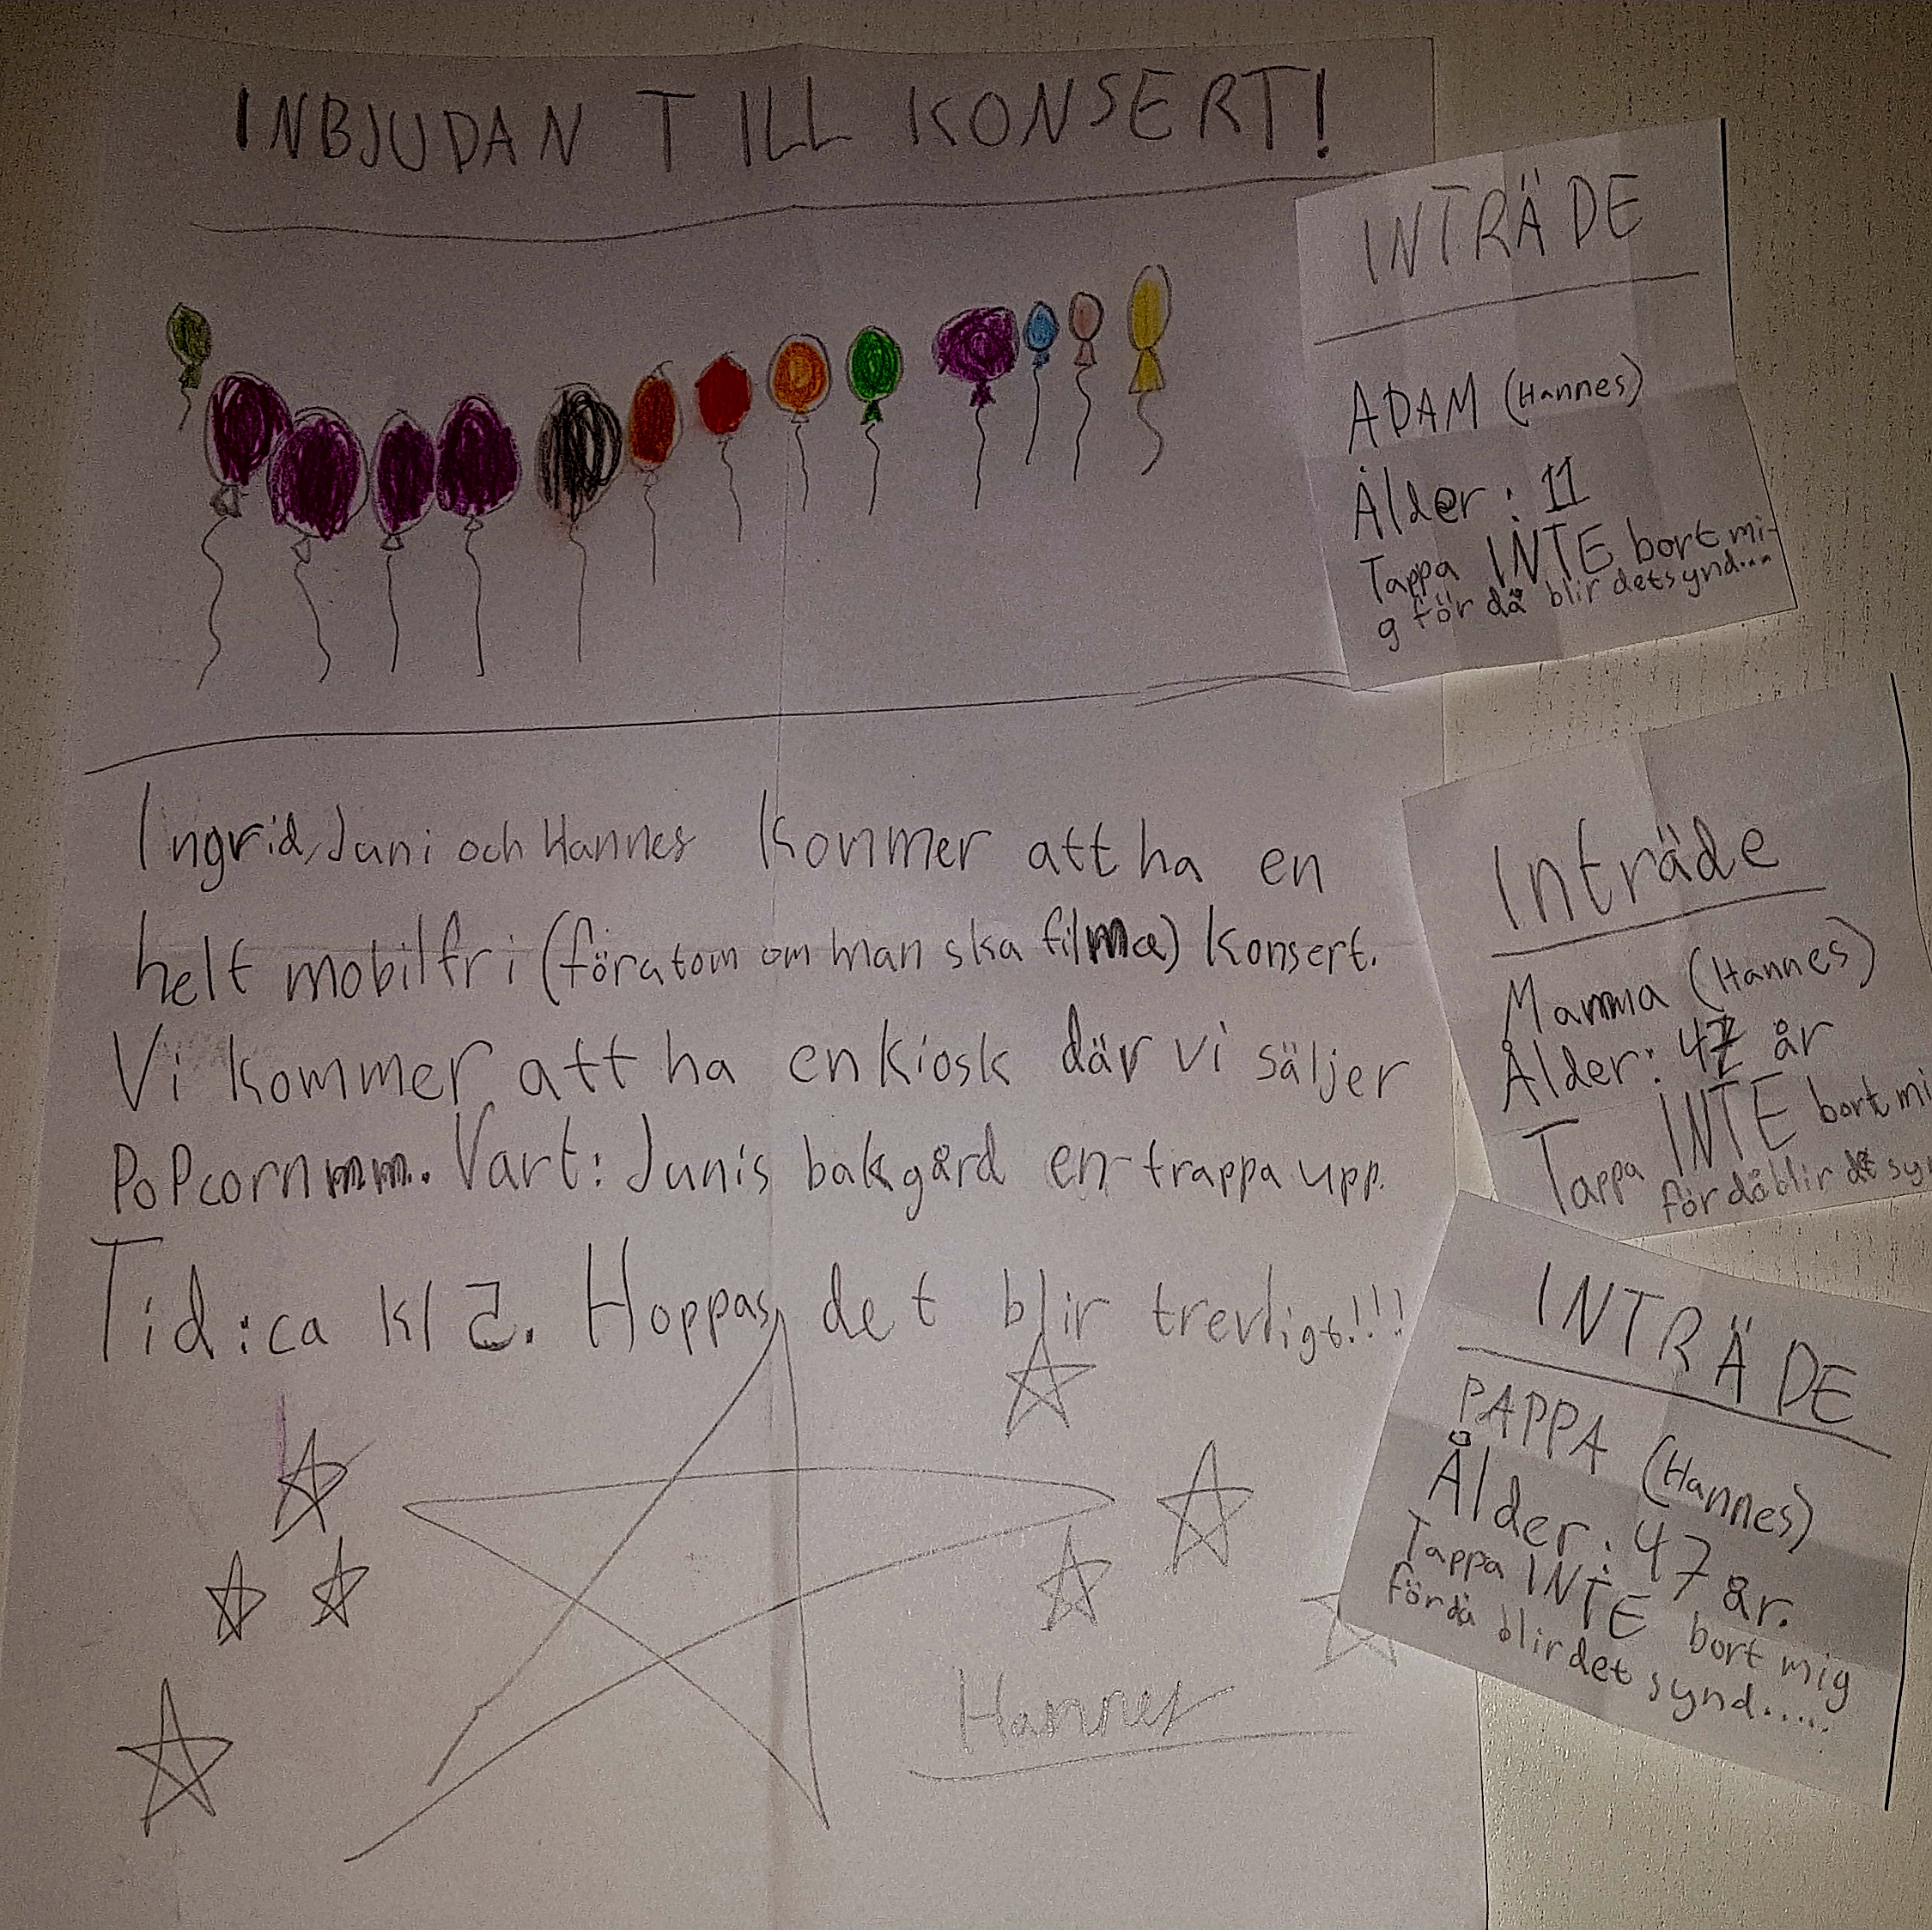 INBJUDAN TILL KONSERT!
Ingrid, Juni och Hannes kommer att ha en
helt mobilfri (föratom om man ska filma) konsert.
Vi kommer att ha en kiosk där vi säljer
PoPcorn mm. Vart: Junis bakgård en trappa upp.
Tid: ca kl 5. Hoppas det blir trevligt!!!
Hannes
INTRÄDE
ADAM (Hannes)
Ålder: 11
Tappa INTE bort mi-
g för då blir det synd...
Inträde
Mamma (Hannes)
Ålder: 47 år
Tappa INTE bort mi
för då blir det sy
INTRÄDE
PAPPA (Hannes)
Ålder: 47 år.
Tappa INTE bort mig
för då blir det synd.....